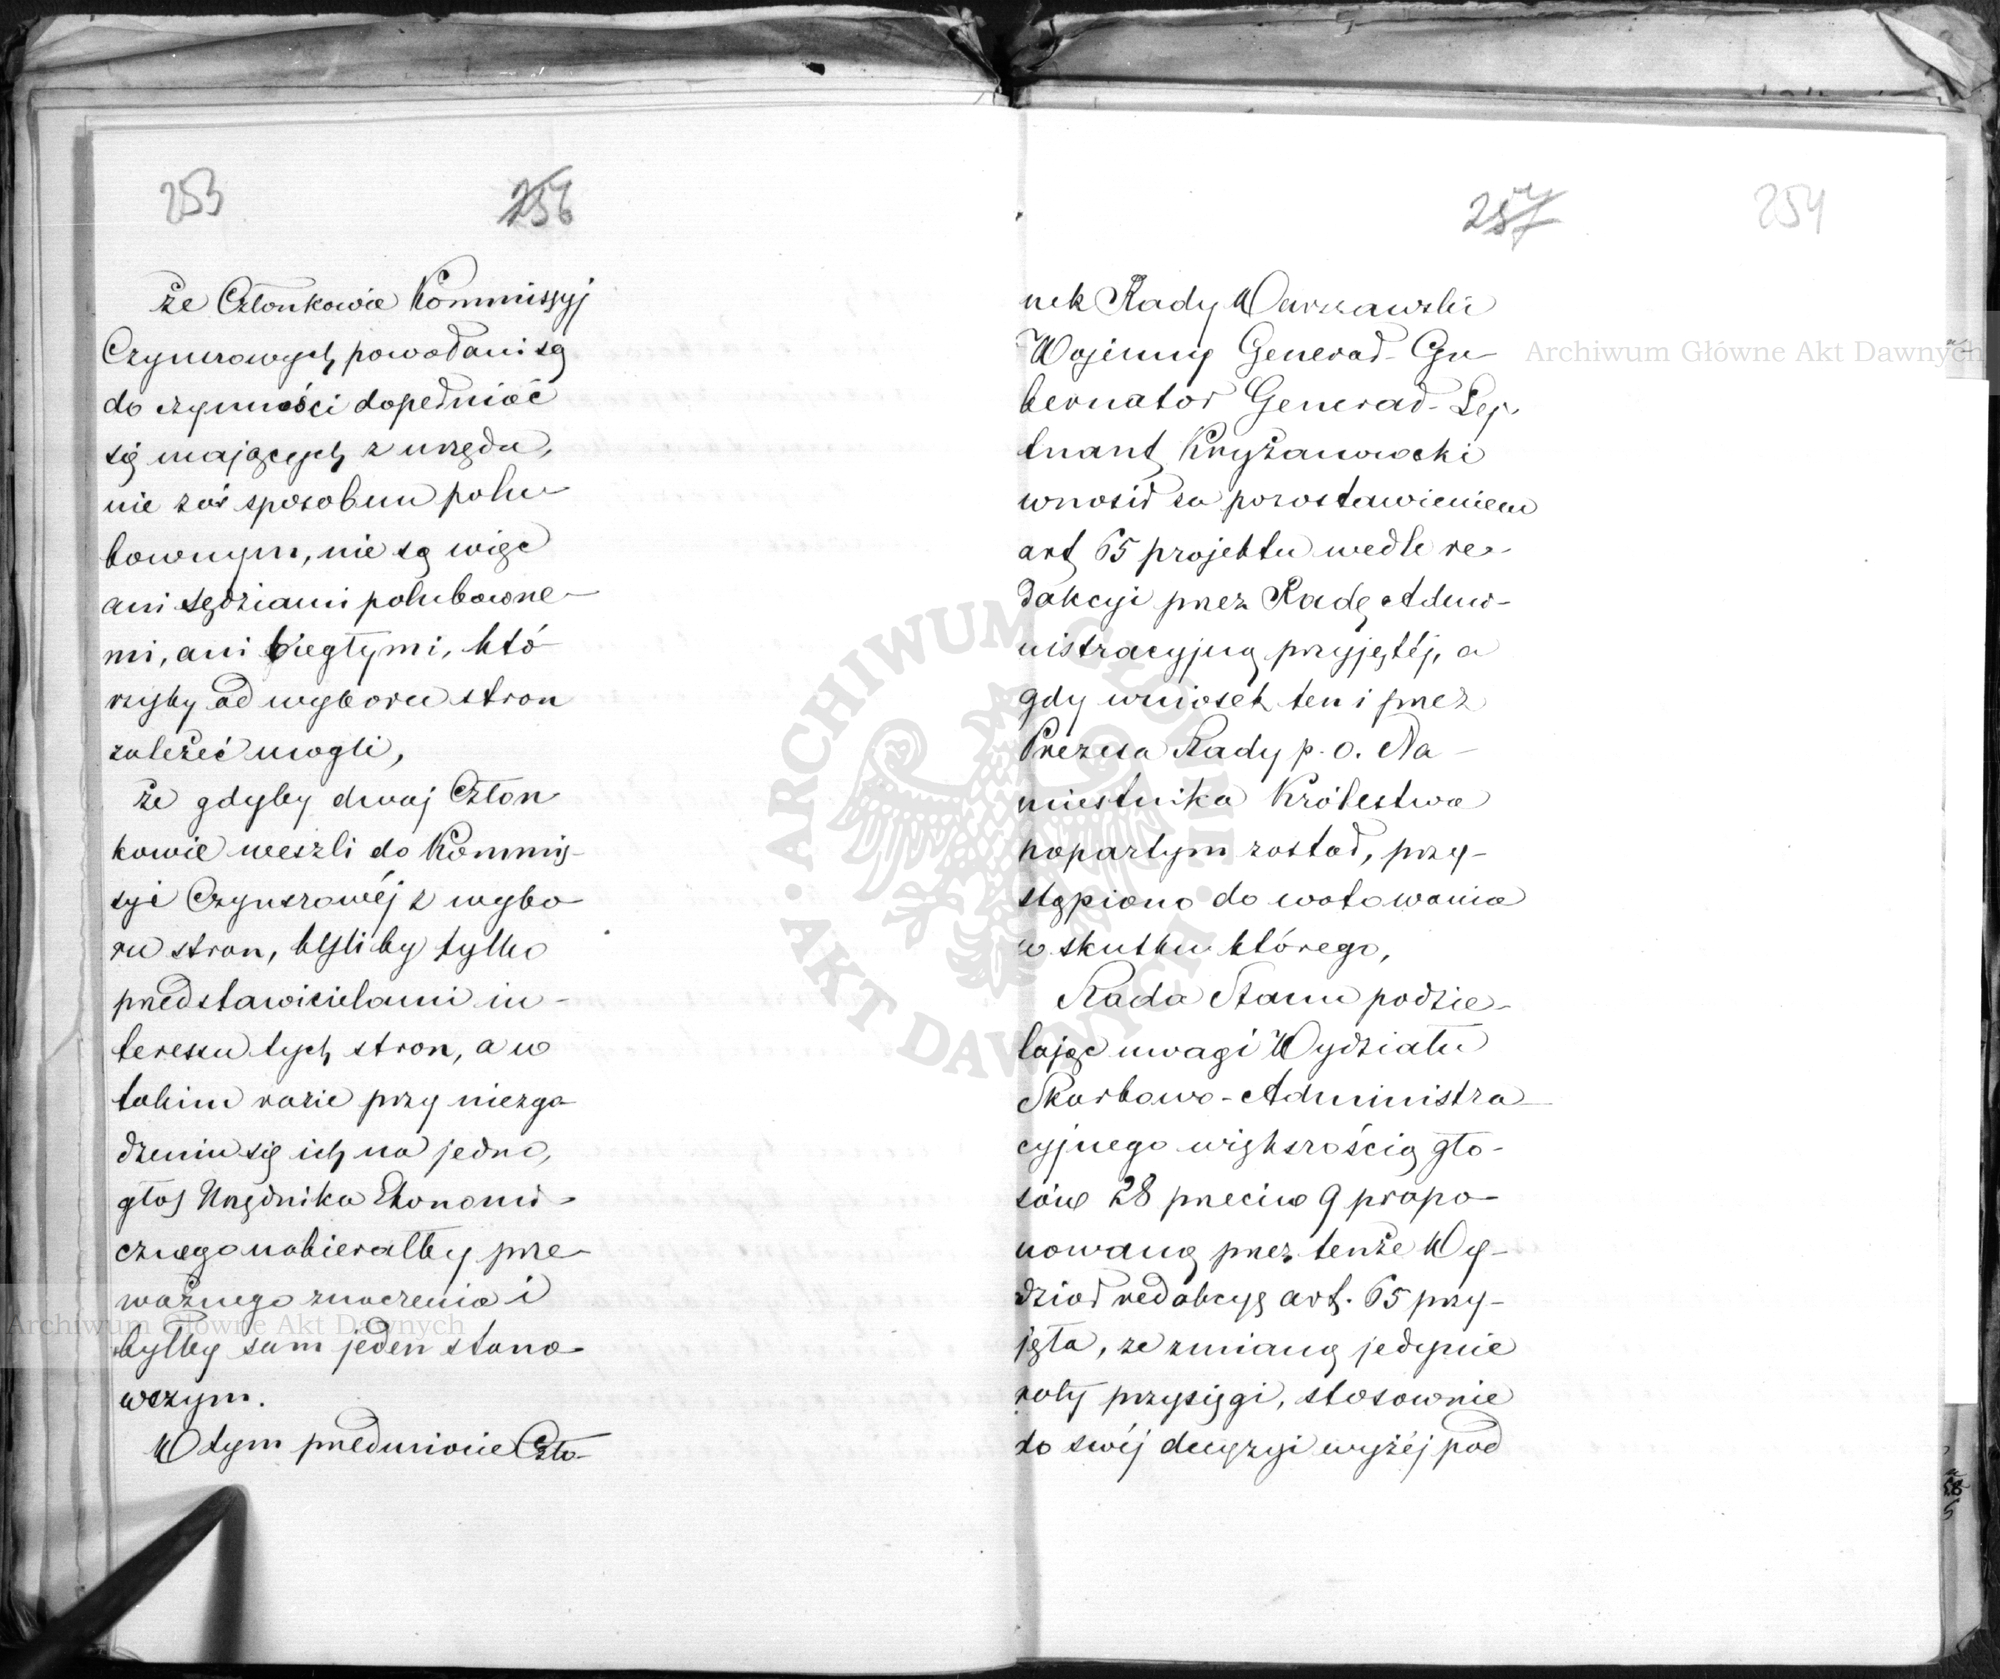 253
256
że Członkowie Kommissyj
Czynszowych powołani są
do czynności dopełniać
się mających z urzędu,
nie zaś sposobem polu-
bownym, nie są więc
ani sędziami polubowne-
mi, ani biegłymi, któ-
rzyby od wyboru stron
zależeć mogli,
że gdyby dwaj Człon
kowie weszli do Kommis-
syi Czynszowéj z wybo-
ru stron, byliby tylko
przedstawicielami in-
teressu tych stron, a w
takim razie przy niezga-
dzeniu się ich na jedno,
głos Urzędnika Ekonomi-
cznego nabierałby prze-
ważnego znaczenia i
byłby sam jeden stano-
wczym.
W tym przedmiocie Czło-
257
254
nek Rady Warszawski
Wojenny Generał-Gu-
bernator Generał-Lej-
tnant Kryżanowski
wnosił za pozostawieniem
art 65 projektu wedle re-
dakcyi przez Radę Admi-
nistracyjną przyjętéj, a
gdy wniosek ten i przez
Prezesa Rady p. o. Na-
miestnika Królestwa
popartym został, przy-
stąpiono do wotowania
w skutku którego,
Rada Stanu podzie-
lając uwagi Wydziału
Skarbowo-Administra-
cyjnego większością gło-
sów 28 przeciw 9 propo-
nowaną przez tenże Wy-
dział redakcyę art. 65 przy-
jęła, ze zmianą jedynie
roty przysięgi, stosownie
do swéj decyzyi wyżéj pod
Archiwum Główne Akt Dawnych
Archiwum Główne Akt Dawnych
ARCHIWUM GŁÓWNE AKT DAWNYCH